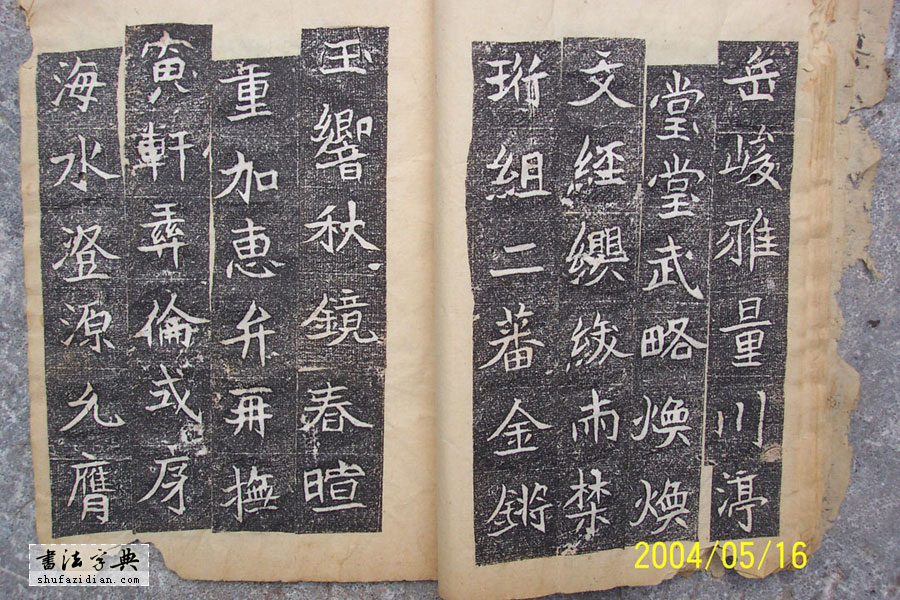 岳峻雅量川渟
堂堂武略煥煥
文經纓紱兩禁
珩組二蕃金鏘
玉響秋鏡春暄
重加惠弁再撫
寅軒彝倫式序
海水澄源允膺
書法字典
shufazidian.com
2004/05/16